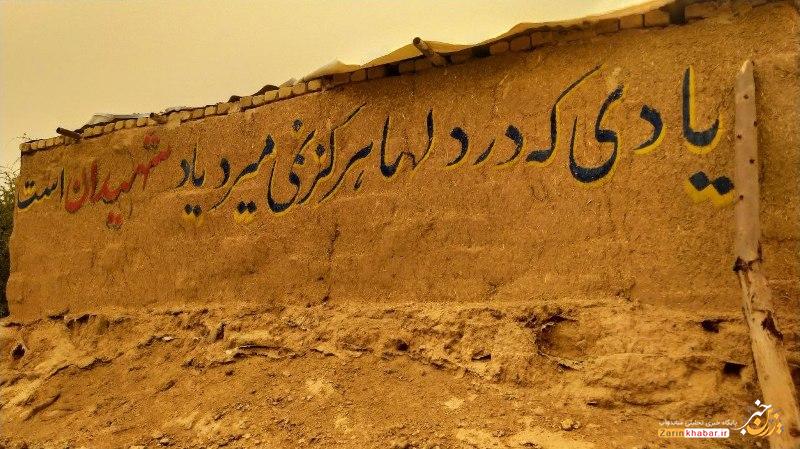 یادی که در دلها هرگز نمی میرد یاد شهیدان است
زرین خبر
پایگاه خبری تحلیلی میاندوآب
Zarinkhabar.ir